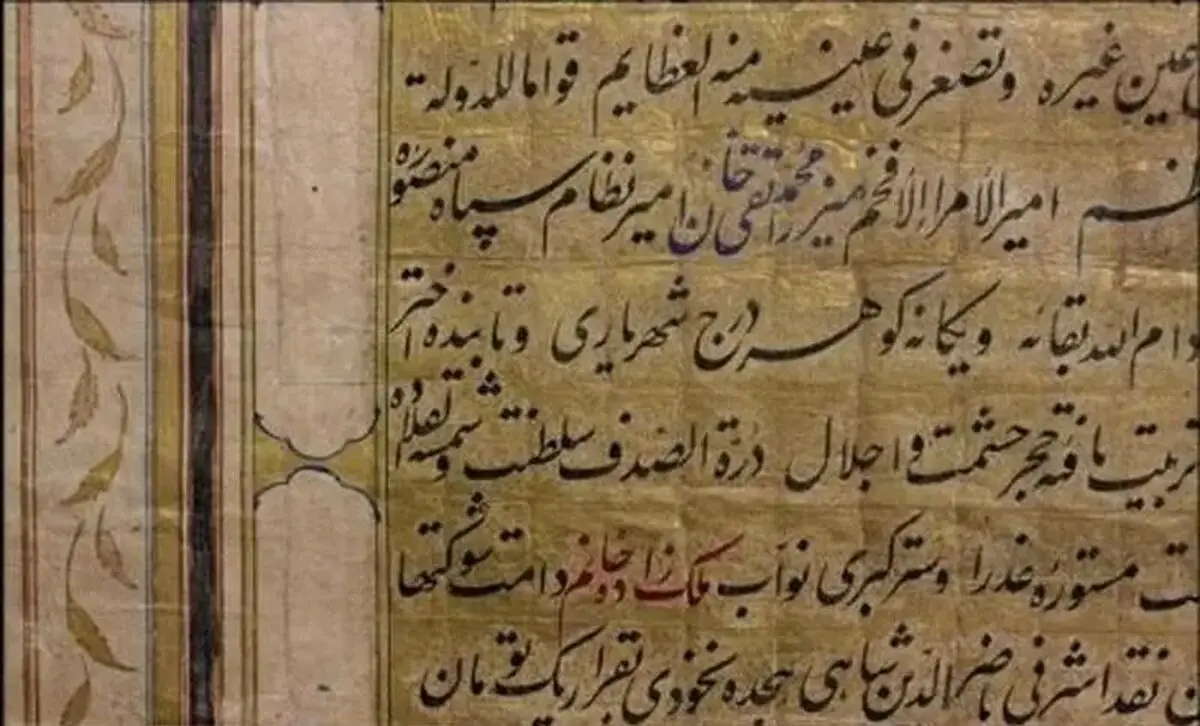 عین غیره وتصغر فی عینیه منه العظایم قواما للدولة
امیرالامراء الافخم میرزا محمد تقی خان امیر نظام سپاه منصوره
دام الله بقائه ویکانه کوهر درج شهریاری وتابنده اختر
تربیت یافته حجر حشمت واجلال درة الصدف سلطنت وشمسة القلاده
مستوره عذرا وستر کبری نواب ملک زاده خانم دامت شوکتها
نقد اشرفی ناصرالدین شاهی هیجده نخودی بقرار یک تومان